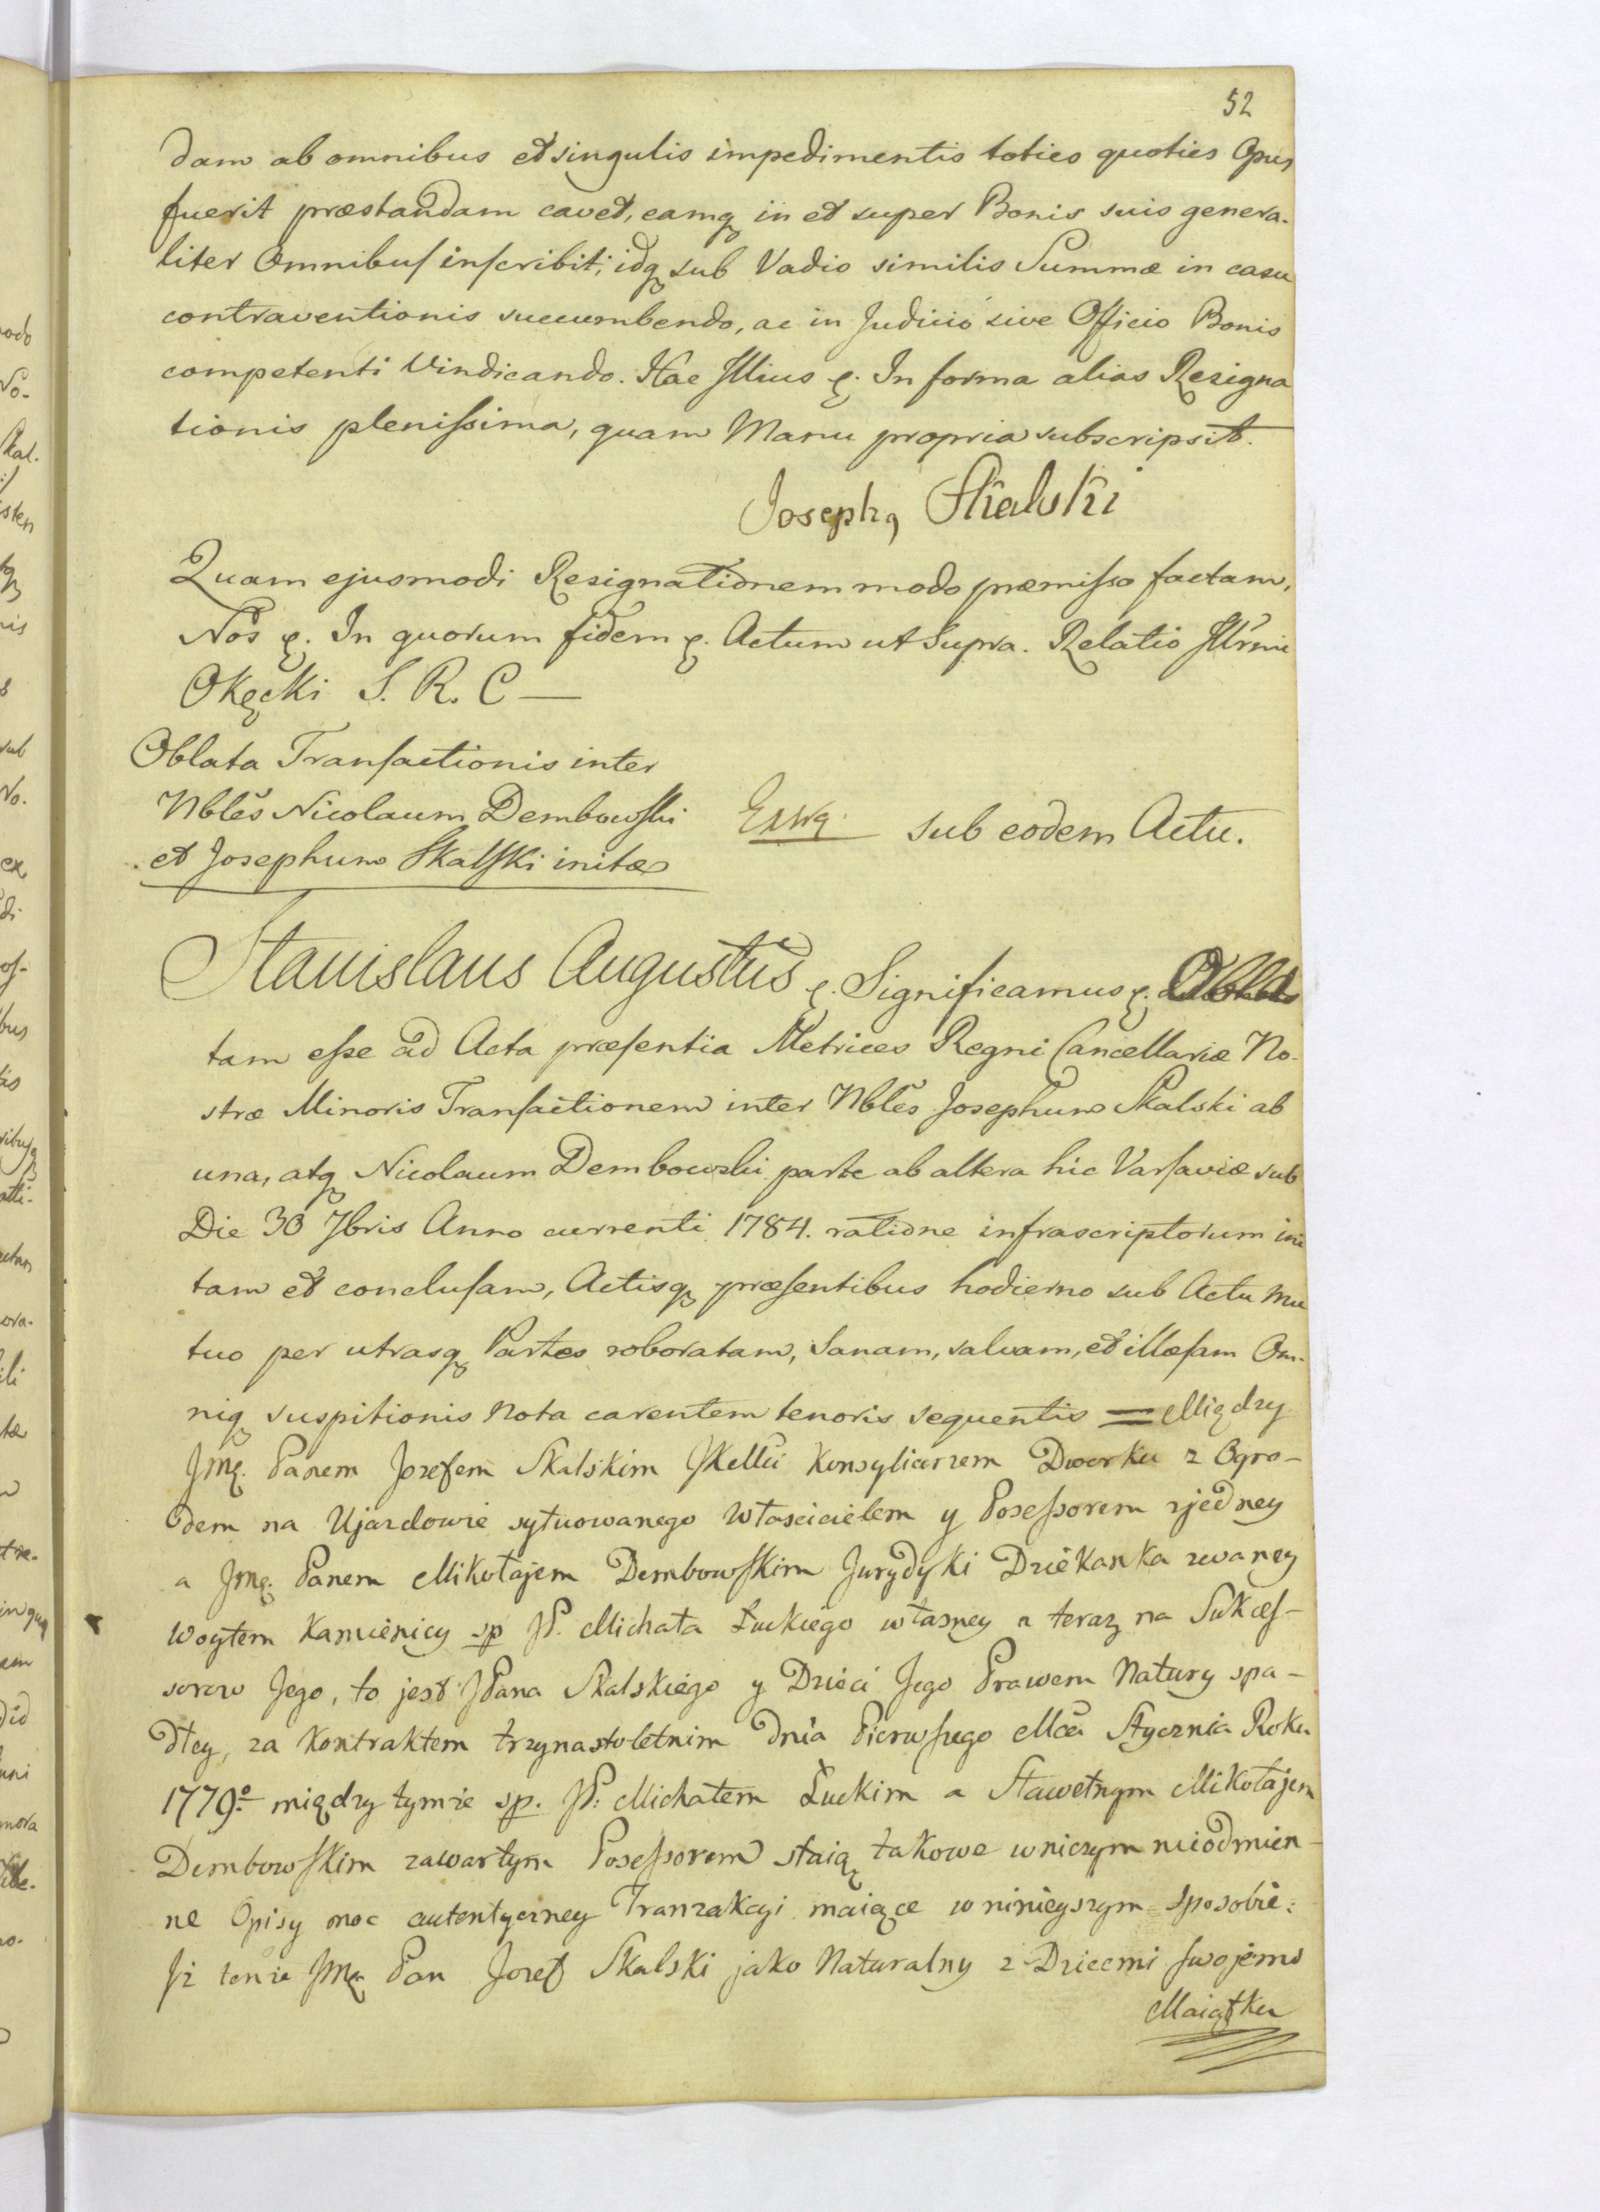 52
dam ab omnibus et singulis impedimentis toties quoties Opus
fuerit præstandam cavet, eamq in et super Bonis suis genera-
liter Omnibus inscribit; idq sub Vadio similis Summæ in casu
contraventionis succumbendo, ac in Judicio sive Officio Bonis
competenti Vindicando. Hac Illius &. In forma alias Resigna
tionis plenissima, quam Manu propria subscripsit.
Josephq Skalski
Quam ejusmodi Resignationem modo præmisso factam,
Nos &. In quorum fidem &. Actum ut Supra. Relatio Illrmi
Okęcki S. R. C —
Oblata Transactionis inter
Nbles Nicolaum Dembowski
et Josephum Skalski initæ
sub eodem Actu.
Stanislaus Augustus &. Significamus &. Obla
tam esse ad Acta præsentia Metrices Regni Cancellariæ No-
stræ Minoris Transactionem inter Nbles Josephum Skalski ab
una, atq Nicolaum Dembowski parte ab altera hic Varsaviæ sub
Die 30 7bris Anno currenti 1784. ratione infrascriptorum ini
tam et conclusam, Actisq præsentibus hodierno sub Actu Mu
tuo per utrasq Partes roboratam, Sanam, salvam, et illæsam Om-
niq suspitionis Nota carentem tenoris sequentis = Między
JMę. Panem Jozefem Skalskim JKMci Konsyliarzem Dworku z Ogro-
dem na Ujazdowie sytuowanego Włascicielem y Possessorem zjedney
a Jmę. Panem Mikołajem Dembowskim Jurydyki Dziekanka zwaney
Woytem Kamienicy sp JP. Michała Łuckiego własney a teraz na Sukces-
sorow Jego, to jest JPana Skalskiego y Dzieci Jego Prawem Natury spa-
dłey, za Kontraktem trzynastoletnim dnia Pierwszego Mca Stycznia Roku
1779º między tymże sp. JP. Michałem Łuckim a Sławetnym Mikołajem
Dembowskim zawartym Possessorem staią takowe wniczym nieodmien-
ne Opisy moc autentyczney Tranzakcyi maiące w ninieyszym sposobie:
Iż tenże JMę Pan Jozef Skalski jako Naturalny z Dziecmi swojemi
Maiątku